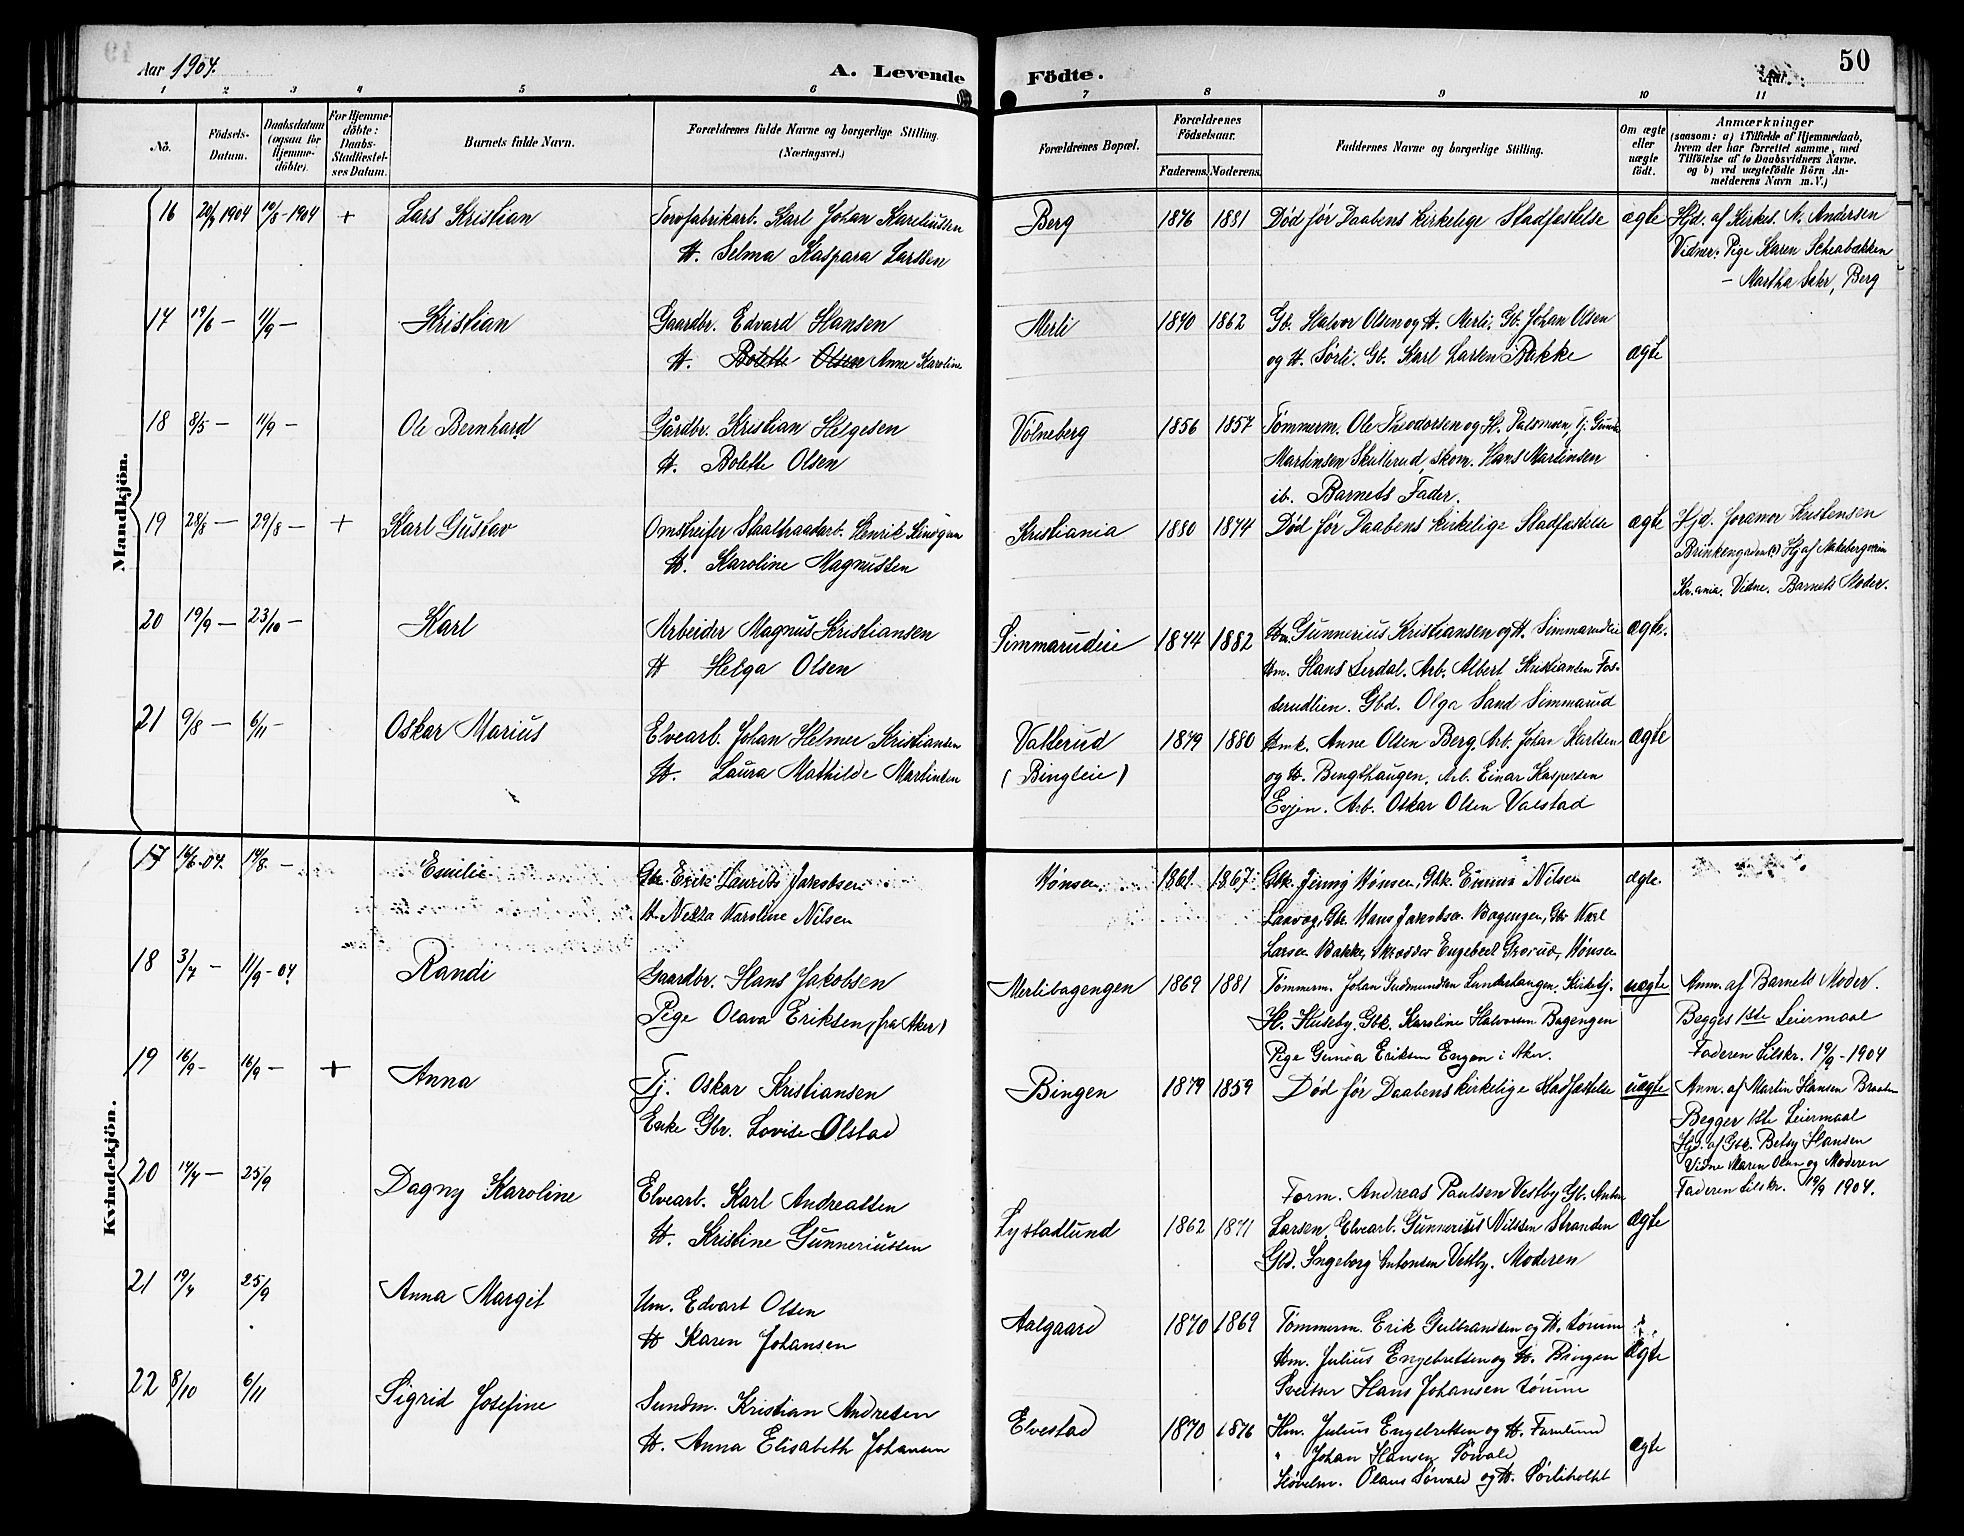 Aar 1904.
A. Levende Födte.
50
1 2 3 4 5 6 7 8 9 10 11
Nô. Födsels-Datum. Daabsdatum (ogsaa for Hjemme-döbte). For Hjemme-döbte: Daabs-Stadfæstel-ses Datum. Barnets fulde Navn. Forældrenes fulde Navne og borgerlige Stilling. (Næringsvei.) Forældrenes Bopæl. Forældrenes Födselsaar. Faderens. Moderens. Faddernes Navne og borgerlige Stilling. Om ægte eller uægte födt. Anmærkninger (saasom: a) i Tilfælde af Hjemmedaab, hvem der har forrettet samme, med Tilföielse af to Daabsvidners Navne, og b) ved uægtefödte Börn An-melderens Navn m. V.)
Mandkjön.
16 20/7 1904 10/8-1904 + Lars Kristian Torvfabrikarb. Karl Johan Kareliussen Berg 1876 1881 Död før Daabens kirkelige Stadfæstelse ægte Hjd. af Kirkes. A. Andersen
H. Selma Kaspara Larssen Vidner: Pige Karen
- Martha Sæhr, Berg
17 19/6 - 11/9 - Kristian Gaardbr. Edvard Hansen Merli 1870 1862 Gb. Halvor Olsen og H. Merli, Gb. Johan Olsen
H. Bolette Olsen Anne Karoline og H. Sörli. Gb. Karl Larsen Bakke ægte
18 8/5 - 11/9 - Ole Bernhard Gårdbr. Kristian Helgesen Volneberg 1856 1857 Tömmerm. Ole Theodorsen og H.
H. Bolette Olsen Martinsen Skulerud, skom. Hans Martinsen
ib. Barnets Fader.
19 28/8 - 29/8 - + Karl Gustav Omstreifer Staaltraadarb. Henrik Kristiania 1880 1874 Död før Daabens kirkelige Stadfæstelse ægte Hjd. Joramor Kristensen
H. Karoline Magnussen
Kr.ania. Vidne. Barnets Moder.
20 19/9 - 23/10 - Karl Arbeider Magnus Kristiansen Simmarudeie 1874 1882 Hm. Gunnerius Kristiansen og H. Simmarudeie ægte.
H Helga Olsen Hm. Hans Lerdal. Arb. Albert Kristiansen Fos-
serudlien. Gbd. Olga Sand Simmarud
21 9/8 - 6/11 - Oskar Marius Elvearb. Johan Helmer Kristiansen Valterud 1879 1880 Hmk. Anne Olsen Berg, Arb. Johan Karlsen ægte
H. Laura Mathilde Martinsen (Bingseie) og H. Bingshaugen, Arb. Einar Kaspersen
Evjen. Arb. Oskar Olsen Valstad
Kvindekjön.
17 16/6-04. 14/8 - Emilie Gbr. Erik Laurits Jakobsen Hønsen 1861 1867 Gbk. Jenny Hønsen, Gbk. Emma Nilsen ægte.
H. Nikka Karoline Nilsen Gbr. Hans Jakobsen Bagengen, Gbr Karl
Larsen Bakke, Skrædder Engebret Grorud, Hønsen
18 3/7 - 11/9-04 Randi Gaardbr. Hans Jakobsen Merlibagengen 1869 1881 Tömmerm. Johan Gudmundsen Lunderhaugen, Kirketj. uægte Anm. af Barnets Moder.
Pige Olava Eriksen (fra Aker) H. Huseby. Gbk. Karoline Halvorsen Bagengen Begges 1ste Leiermaal
Pige Gunda Eriksen Engen i Aker. Faderen tilskr. 19/9-1904
19 16/9 - 16/9 - + Anna Tj. Oskar Kristiansen Bingen 1879 1859 Död før Daabens kirkelige Stadfæstelse uægte Anm. af Martin Hansen Braaten
Enke Gbr. Lovise Olstad Begges 1ste Leiermaal
Hjd. af Gbk. Betsy Hansen
20 14/7 - 25/9 Dagny Karoline Elvearb. Karl Andreassen Vidne Maren Olsen og Moderen
Form. Andreas Paulsen Vestby Gb. Anton Faderen tilskr. 19/9 1904.
H. Kristine Gunneriussen Lystadlund 1862 1871 Larsen, Elvearb. Gunnerius Nilssen Stranden ægte
Gbd. Ingeborg Antonsen Vestby. Moderen
21 19/7 25/9 Anna Margit Hm. Edvart Olsen Aalgaard 1870 1869 Tömmerm. Erik Gulbrandsen og H. Sørum
H Karen Johansen Hm. Julius Engebretsen og H. Bingen ægte
Sveitser Hans Johansen Sørum
22 8/10 6/11 Sigrid Josefine Sundm. Kristian Andresen Elvestad 1870 1876 Hm. Julius Engebretsen og H. Famlund
H. Anna Elisabeth Johansen " Johan Hansen Sørvald ægte
Olaus Sørvald og H. Sörliholtet